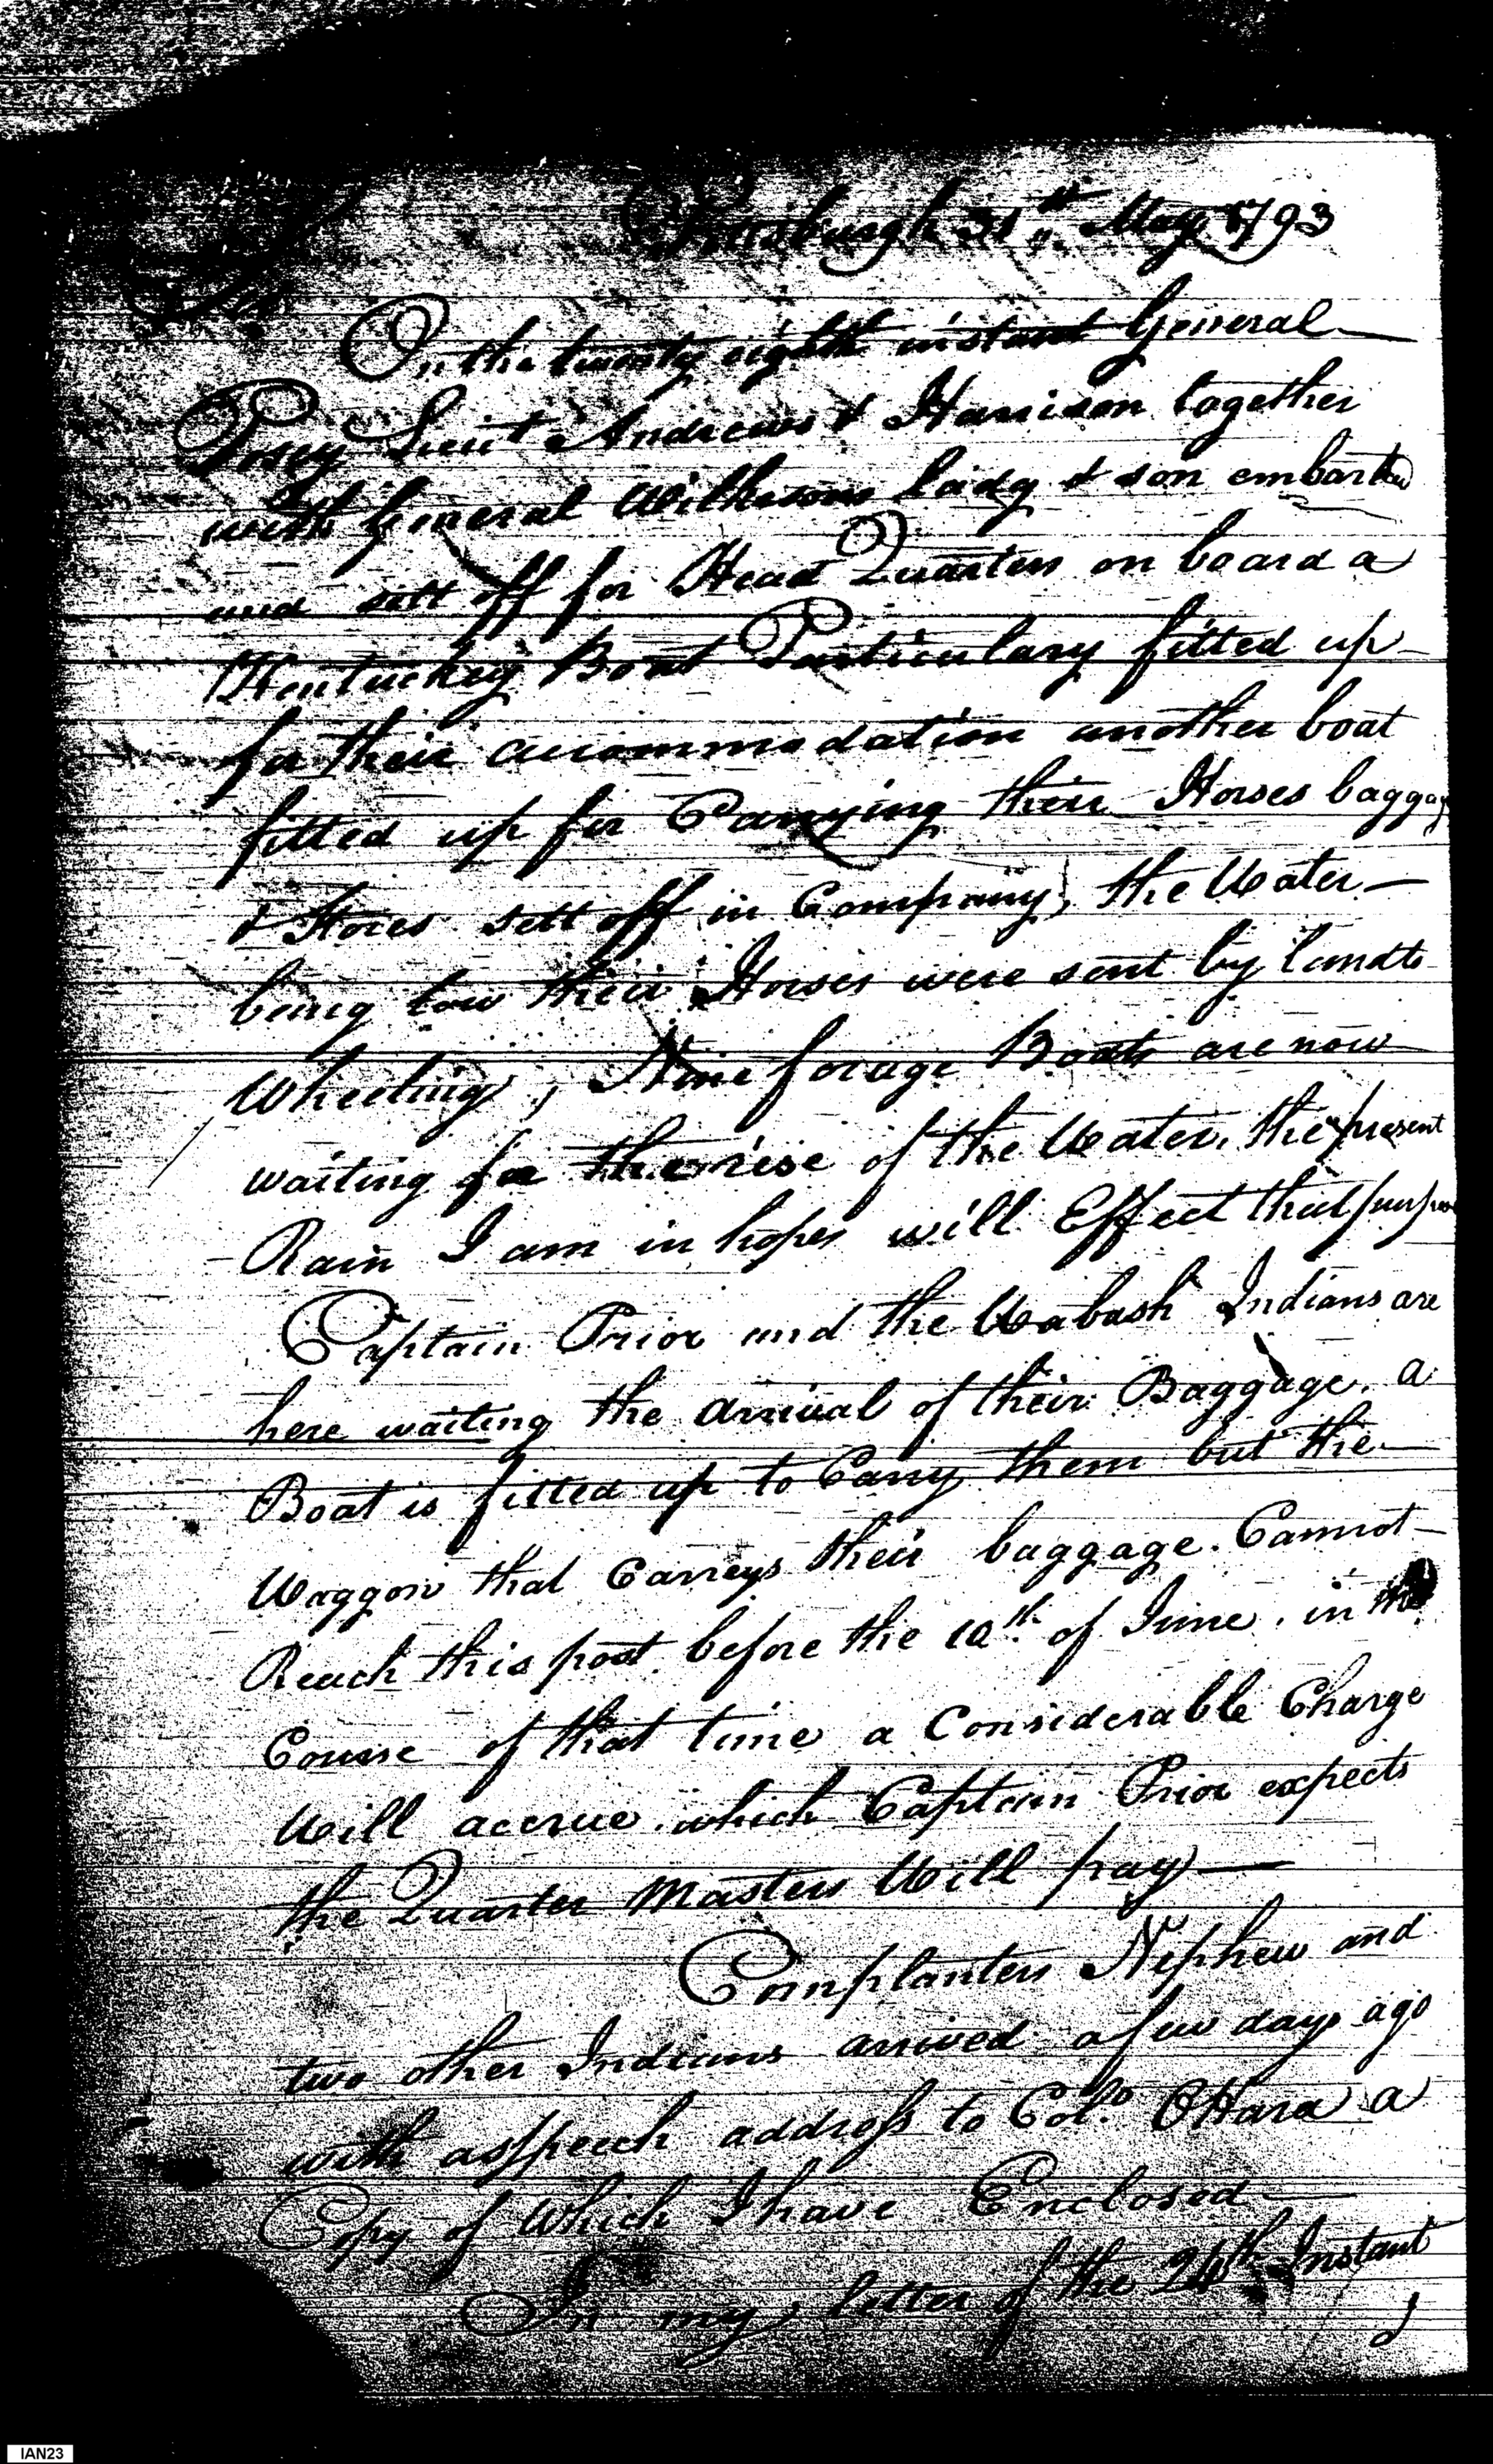 Pittsburgh 31st May 1793
Sir
On the twenty eighth instant General
Posey Lieut Andrews & Harrison together
with General Wilkinsons lady & son embarked
and sett off for Head Quarters on board a
Kentuckey Boat Particulary fitted up
for their accommodation another boat
fitted up for Carrying their Horses baggage
& Stores sett off in Company, the Water
being low their Horses were sent by land to
Wheeling, Nine forage Boats are now
waiting for the rise of the Water, the present
Rain I am in hopes will Effect that purpose
Captain Prior and the Wabash Indians are
here waiting the arrival of their Baggage. a
Boat is fitted up to Carry them but the
Waggon that Carreys their baggage. Cannot
Reach this post before the 10th of June. in the
Course of that time a Considerable Charge
Will accrue. which Captain Prior expects
the Quarter Masters Will pay
Cornplanters Nephew and
two other Indians arrived a few days ago
with a speech address to Colo. OHara a
Copy of Which I have Enclosed
In my letter of the 24th Instant
IAN23